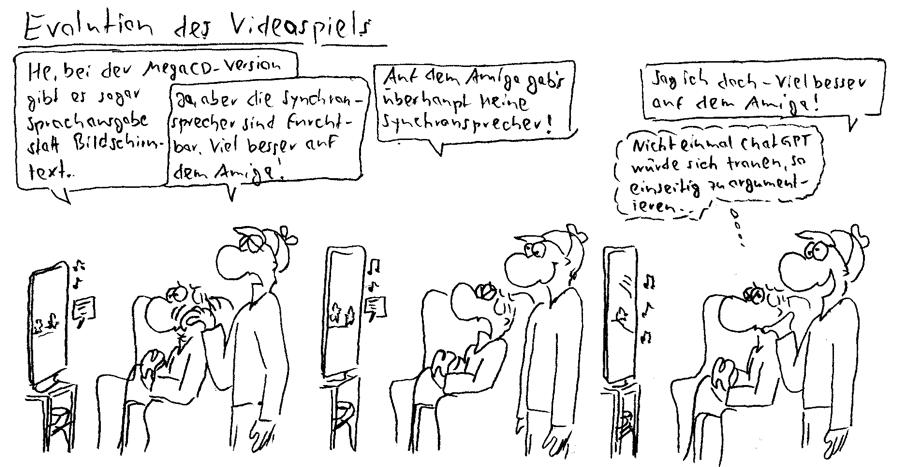 Evolution des Videospiels
He, bei der MegaCD-Version
gibt es sogar
Sprachausgabe
statt Bildschirm-
text..
Ja, aber die Synchron-
sprecher sind furcht-
bar. Viel besser auf
dem Amiga!
Auf dem Amiga gab's
überhaupt keine
Synchronsprecher!
Sag ich doch - Viel besser
auf dem Amiga!
Nicht einmal ChatGPT
würde sich trauen, so
einseitig zu argument-
ieren...